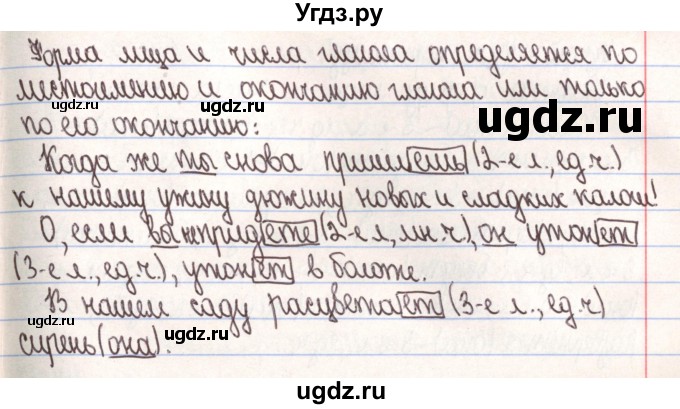 Угдз.ру
Форма лица и числа глагола определяется по
местоимению и окончанию глагола или только
по его окончанию:
Когда же ты снова пришлёшь (2-е л., ед.ч.)
к нашему ужину дюжину новых и сладких калош!
О, если вы не придёте (2-е л, мн.ч.), он утонет
(3-е л., ед.ч.), утонет в болоте.
В нашем саду расцветает (3-е л., ед.ч)
сирень (она).
ugdz.ru
ugdz.ru
ugdz.ru
ugdz.ru
ugdz.ru
ugdz.ru
ugdz.ru
ugdz.ru
ugdz.ru